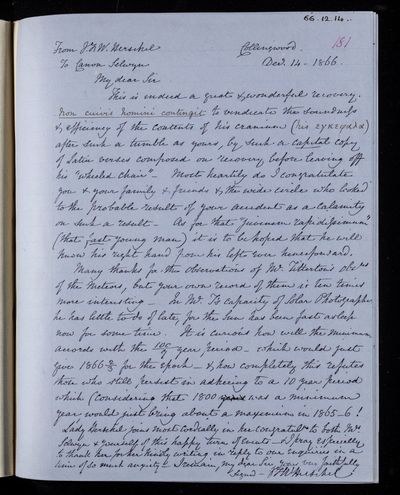 66.12.14.
From J.F.W. Herschel Collingwood
181
To Canon Selwyn Dec. 14 - 1866.
My dear Sir
This is indeed a great & wonderful recovery.
Non cuivis homini contingit to vindicate the soundness
& efficiency of the contents of his cranium (his εγκεφαλα)
after such a tumble as yours, by such a capital copy
of Latin verses composed on recovery before leaving off
his "wheeled chair" - Most heartily do I congratulate
you & your family & friends & the wide circle who looked
to the probable results of your accident as a calamity
on such a result - As for that "juvenem rapidissimum"
(that fast young man) it is to be hoped that he will
know his right hand from his left ever henceforward.
Many thanks for the observations of Mr Titterton's obsns
of the Meteors, but your own record of them is ten times
more interesting - In Mr Ts capacity of Solar Photographer
he has little to do of late, for the Sun has been fast asleep
now for some time. It is curious how well the minimum
accords with the year period - which would just
give 1866 for the epoch - & how completely this refutes
those who still persist in adhering to a 10 year period
which (considering that 1800 was a minimum
year would just bring about a maximum in 1865-6!
Lady Herschel joins most cordially in her congratns to both Mrs
Selwyn & yourself of this happy turn of events - I pray especially
to thank her for her kindly writing in reply to our enquiries in a
time of so much anxiety - I remain, my dear Sir, yours very faithfully
Signed - J.F.W. Herschel